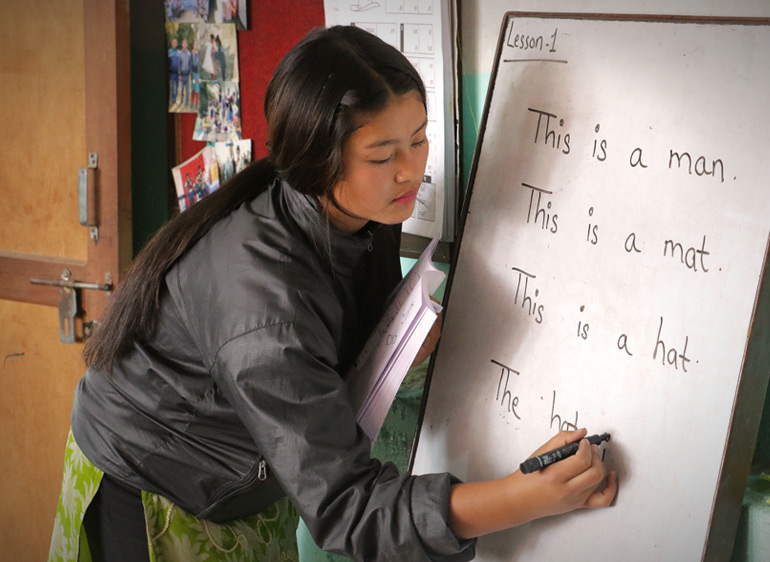 Lesson-1
This is a man.
This is a mat.
This is a hat.
The hat